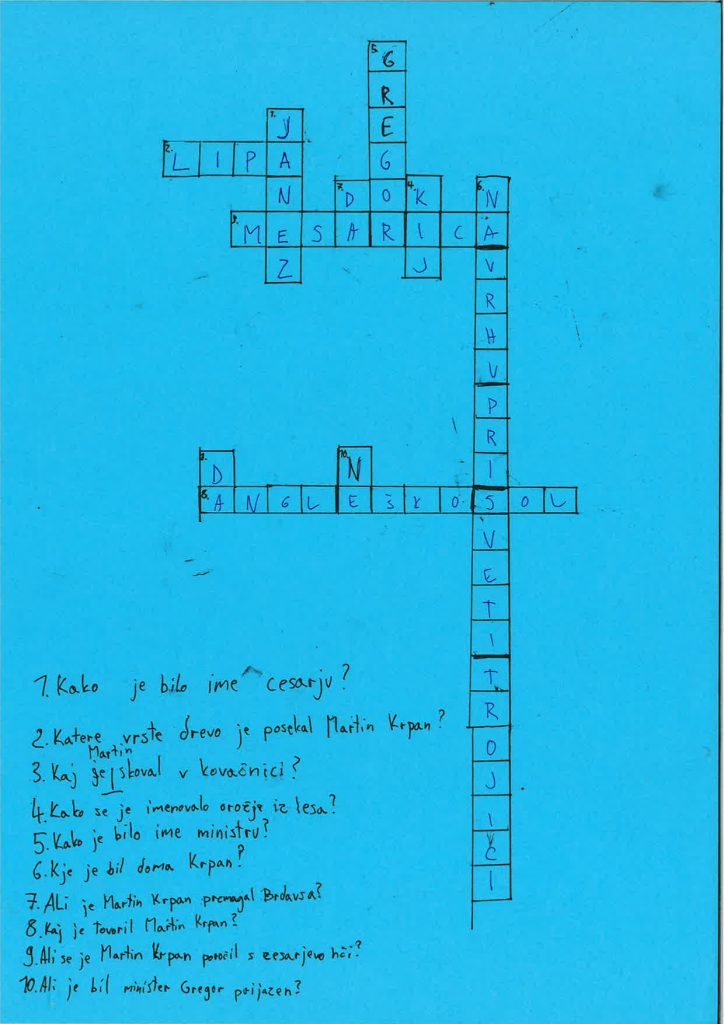 5. G
R
1. J E
2. L I P A G
N 7. D O 4. K 6. N
3. M E S A R I C A
Z J V
R
H
V
P
R
9. D 10. N I
8. A N G L E Š K O S O L
V
E
T
I
T
R
O
J
I
Č
I
1. Kako je bilo ime cesarju?
2. Katere vrste drevo je posekal Martin Krpan?
3. Kaj je Martin skoval v kovačnici?
4. Kako se je imenovalo orožje iz lesa?
5. Kako je bilo ime ministru?
6. Kje je bil doma Krpan?
7. Ali je Martin Krpan premagal Brdavsa?
8. Kaj je tovoril Martin Krpan?
9. Ali se je Martin Krpan poročil s cesarjevo hči?
10. Ali je bil minister Gregor prijazen?